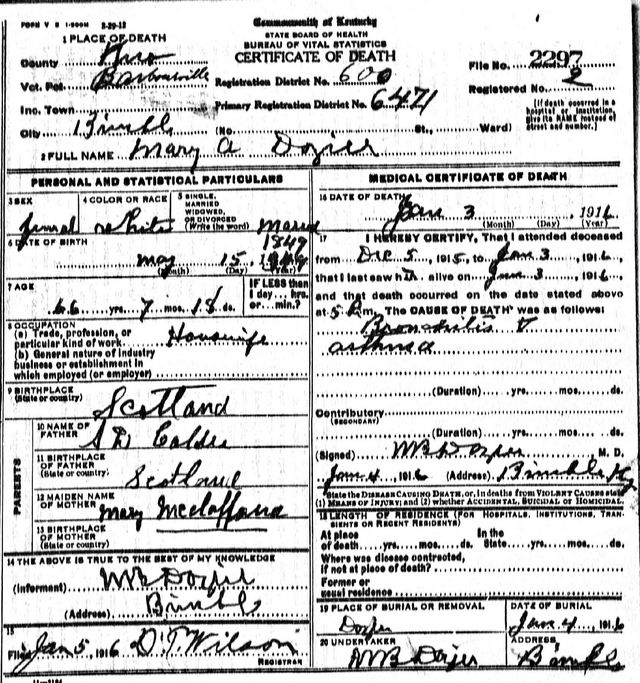 FORM V S 1-500M 3-29-12
Commonwealth of Kentucky
STATE BOARD OF HEALTH
BUREAU OF VITAL STATISTICS
CERTIFICATE OF DEATH
1 PLACE OF DEATH
County
Vot. Pct. Barbourville
Inc. Town
City Bimble (No. St., Ward)
Registration District No. 600
Primary Registration District No. 6471
File No. 2297
Registered No. 2
[If death occurred in a hospital or institution, give its NAME instead of street and number.]
2 FULL NAME Mary A Dozier
PERSONAL AND STATISTICAL PARTICULARS
3 SEX
4 COLOR OR RACE White
5 SINGLE, MARRIED WIDOWED, OR DIVORCED (Write the word) Married
6 DATE OF BIRTH
1849
May 15
(Month) (Day) (Year)
7 AGE
66 yrs. 7 mos. 18 ds.
IF LESS than 1 day....hrs. or....min.?
8 OCCUPATION
(a) Trade, profession, or particular kind of work Housewife
(b) General nature of industry business or establishment in which employed (or employer)
9 BIRTHPLACE
(State or country) Scotland
PARENTS
10 NAME OF FATHER
11 BIRTHPLACE OF FATHER (State or country) Scotland
12 MAIDEN NAME OF MOTHER Mary
13 BIRTHPLACE OF MOTHER (State or country)
14 THE ABOVE IS TRUE TO THE BEST OF MY KNOWLEDGE
(Informent) Dozier
(Address) Bimble
15
Filed Jan 5, 1916 D. T. Wilson
REGISTRAR
MEDICAL CERTIFICATE OF DEATH
16 DATE OF DEATH
Jan 3, 1916
(Month) (Day) (Year)
17 I HEREBY CERTIFY, That I attended deceased
from Dec 5, 1915, to Jan 3, 1916
that I last saw h alive on Jan 3, 1916
and that death occurred on the date stated above
at 5 m. The CAUSE OF DEATH was as follows:
Bronchitis
asthma
(Duration) yrs. mos. ds.
Contributory
(SECONDARY)
(Duration) yrs. mos. ds.
(Signed) M. D.
Jan 4, 1916 (Address) Bimble Ky
State the DISEASE CAUSING DEATH, or, in deaths from VIOLENT CAUSES state (1) MEANS OF INJURY; and (2) whether ACCIDENTAL, SUICIDAL or HOMICIDAL.
18 LENGTH OF RESIDENCE (FOR HOSPITALS, INSTITUTIONS, TRANSIENTS OR RECENT RESIDENTS)
At place of death....yrs....mos....ds. In the State....yrs....mos....ds.
Where was disease contracted, if not at place of death?
Former or usual residence
19 PLACE OF BURIAL OR REMOVAL
Dozier
DATE OF BURIAL
Jan 4, 1916
20 UNDERTAKER
Dozier
ADDRESS
Bimble